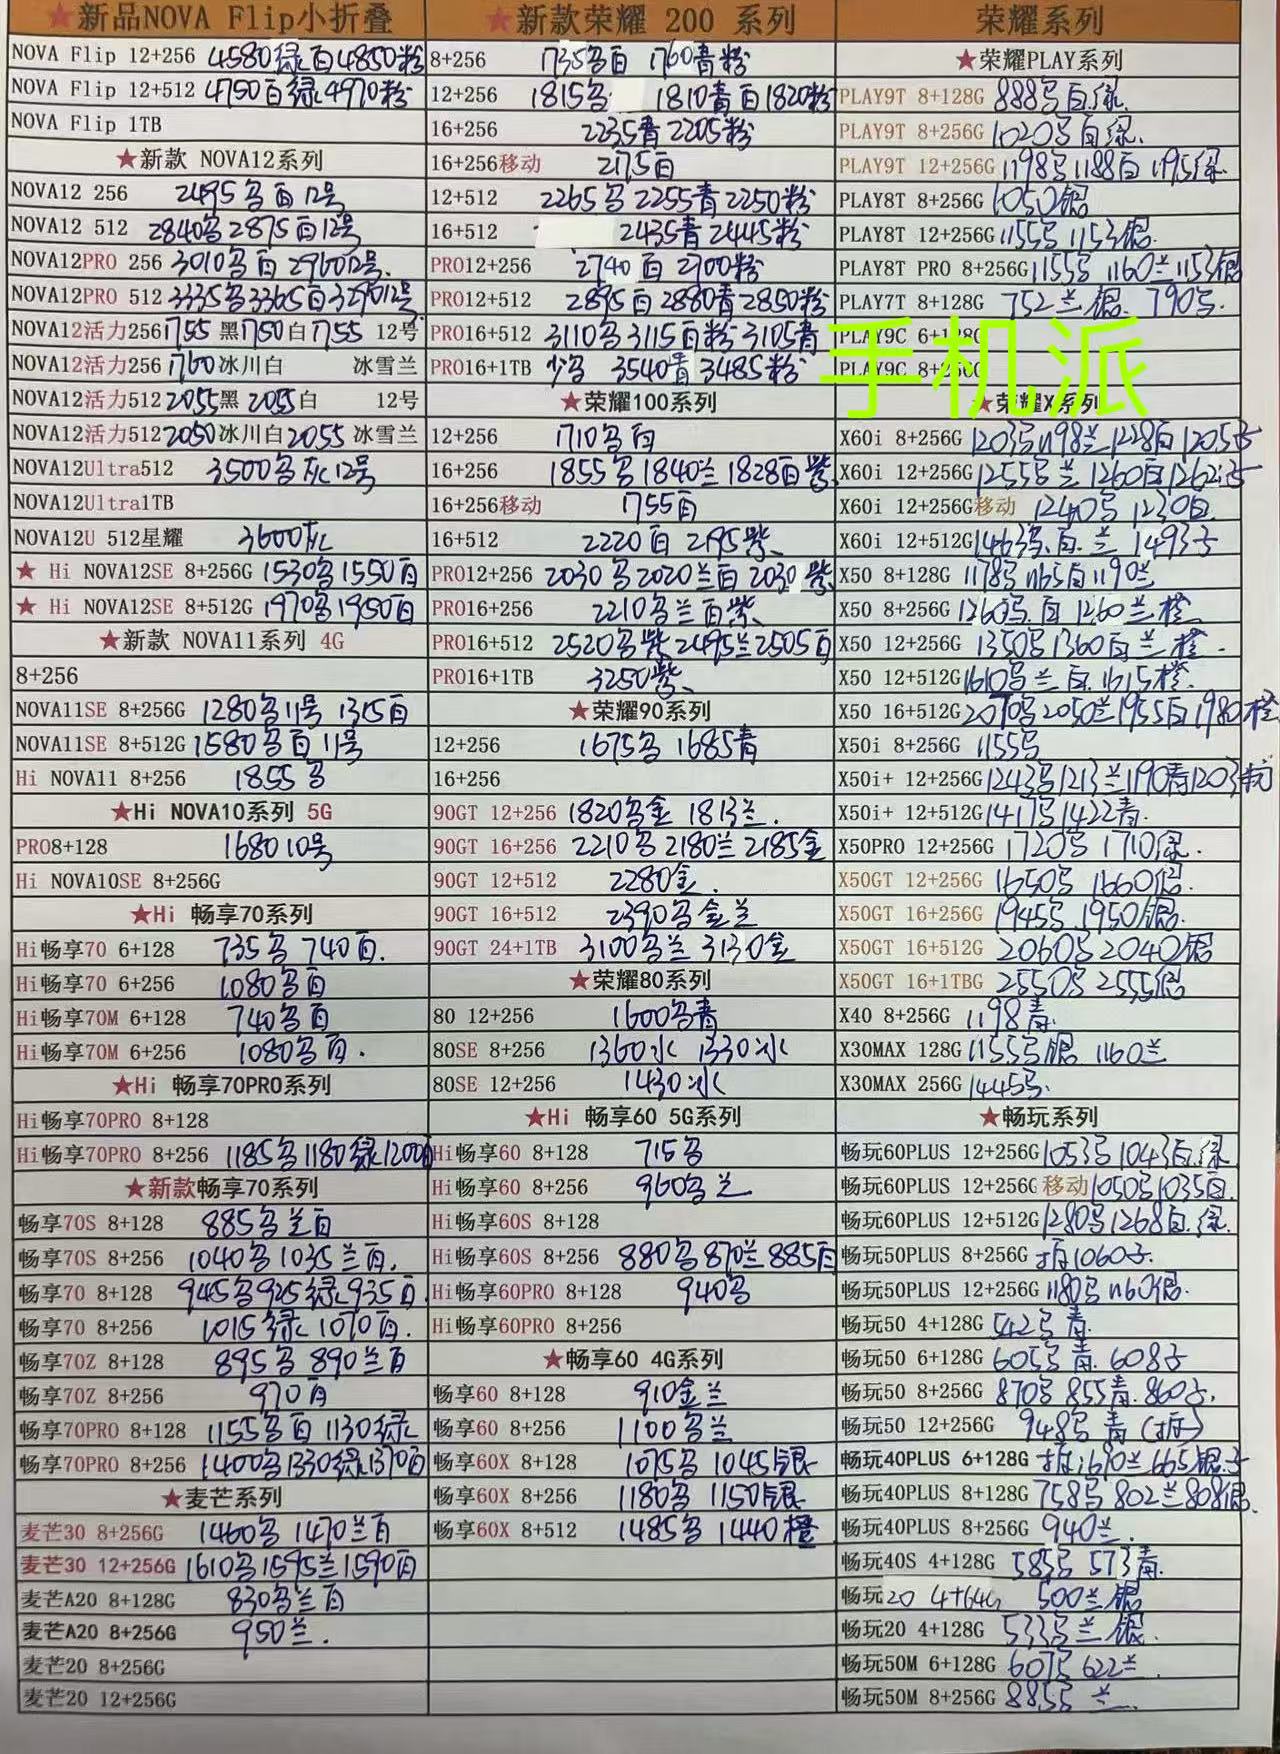 ★新品NOVA Flip小折叠
NOVA Flip 12+256 4580绿白4850粉
NOVA Flip 12+512 4750白绿4970粉
NOVA Flip 1TB
★新款 NOVA12系列
NOVA12 256 2495 白12号
NOVA12 512 2840 2875白12号
NOVA12PRO 256 3010 白 2960 12号.
NOVA12PRO 512 3335 3365白 12号
NOVA12活力256 1755 黑1750白1755 12号
NOVA12活力256 1760冰川白 冰雪兰
NOVA12活力512 2055黑 2055白 12号
NOVA12活力512 2050冰川白2055 冰雪兰
NOVA12Ultra512 3500 灰12号
NOVA12Ultra1TB
NOVA12U 512星耀 3600灰
★ Hi NOVA12SE 8+256G 1530 1550白
★ Hi NOVA12SE 8+512G 1970 1950白
★新款 NOVA11系列 4G
8+256
NOVA11SE 8+256G 1280 11号 1315白
NOVA11SE 8+512G 1580 白 11号
Hi NOVA11 8+256 1855
★Hi NOVA10系列 5G
PRO8+128 1680 10号
Hi NOVA10SE 8+256G
★Hi 畅享70系列
Hi畅享70 6+128 735 740白.
Hi畅享70 6+256 1080 白
Hi畅享70M 6+128 740 白
Hi畅享70M 6+256 1080 白.
★Hi 畅享70PRO系列
Hi畅享70PRO 8+128
Hi畅享70PRO 8+256 1185 1180绿1200白
★新款畅享70系列
畅享70S 8+128 885 兰白
畅享70S 8+256 1040 1035兰白.
畅享70 8+128 945 925绿935白.
畅享70 8+256 1015绿 1070白.
畅享70Z 8+128 895 890兰白
畅享70Z 8+256 970白
畅享70PRO 8+128 1155 白 1130绿
畅享70PRO 8+256 1400 1330绿1370白
★麦芒系列
麦芒30 8+256G 1460 1470兰白
麦芒30 12+256G 1610 1595兰1590白
麦芒A20 8+128G 830 兰白
麦芒A20 8+256G 950兰.
麦芒20 8+256G
麦芒20 12+256G
★新款荣耀 200 系列
8+256 1735 白 1760青粉
12+256 1815 1810青白1820粉
16+256 2235青 2205粉
16+256移动 2175白
12+512 2265 2255青2250粉
16+512 2435青2445粉
PRO12+256 2740 白2700粉
PRO12+512 2895白2880青2850粉
PRO16+512 3110 3115白粉3105青
PRO16+1TB 少 3540青3485粉
★荣耀100系列
12+256 1710 白
16+256 1855 1840兰1828白紫
16+256移动 1755白
16+512 2220白 2195紫
PRO12+256 2030 2020兰白2030紫
PRO16+256 2210 兰白紫
PRO16+512 2520 紫2495兰2505白
PRO16+1TB 3250紫
★荣耀90系列
12+256 1675 1685青
16+256
90GT 12+256 1820 金 1813兰.
90GT 16+256 2210 2180兰2185金
90GT 12+512 2280金.
90GT 16+512 2390 金兰
90GT 24+1TB 3100 兰 3130金
★荣耀80系列
80 12+256 1600 青
80SE 8+256 1360水 1330冰
80SE 12+256 1430冰
★Hi 畅享60 5G系列
Hi畅享60 8+128 715
Hi畅享60 8+256 960 兰
Hi畅享60S 8+128
Hi畅享60S 8+256 880 870兰885白
Hi畅享60PRO 8+128 940
Hi畅享60PRO 8+256
★畅享60 4G系列
畅享60 8+128 910金兰
畅享60 8+256 1100 兰
畅享60X 8+128 1075 1045银
畅享60X 8+256 1180 1150银
畅享60X 8+512 1485 1440橙
荣耀系列
★荣耀PLAY系列
PLAY9T 8+128G 888 白绿.
PLAY9T 8+256G 1020 白绿.
PLAY9T 12+256G 1198 1188白1195绿
PLAY8T 8+256G 1050银
PLAY8T 12+256G 1155 1153银.
PLAY8T PRO 8+256G 1155 1160兰1153银
PLAY7T 8+128G 752兰银. 790
PLAY9C 6+128G
PLAY9C 8+256G
手机派
★荣耀X系列
X60i 8+256G 1203 1198兰1228白1205
X60i 12+256G 1255 兰1260白1262
X60i 12+256G移动 1240 1230白
X60i 12+512G 1463 白兰 1493
X50 8+128G 1178 1165白1190兰
X50 8+256G 1260 白1260兰橙
X50 12+256G 1350 1360白兰橙.
X50 12+512G 1610 兰白1615橙
X50 16+512G 2070 2050兰1955白1980橙
X50i 8+256G 1155
X50i+ 12+256G 1243 1213兰1190青1203粉
X50i+ 12+512G 1417 1422青.
X50PRO 12+256G 1720 1710绿.
X50GT 12+256G 1650 1660银.
X50GT 16+256G 1945 1950银.
X50GT 16+512G 2060 2040银
X50GT 16+1TBG 2550 2555银
X40 8+256G 1198青.
X30MAX 128G 1155 银 1160兰
X30MAX 256G 1445
★畅玩系列
畅玩60PLUS 12+256G 1053 1043白绿
畅玩60PLUS 12+256G 移动1050 1035白.
畅玩60PLUS 12+512G 1280 1268白绿.
畅玩50PLUS 8+256G 1060
畅玩50PLUS 12+256G 1180 1160银.
畅玩50 4+128G 542 青.
畅玩50 6+128G 605 青 608
畅玩50 8+256G 870 855青 860
畅玩50 12+256G 948 青
畅玩40PLUS 6+128G 670兰665银
畅玩40PLUS 8+128G 758 802兰808银
畅玩40PLUS 8+256G 940兰.
畅玩40S 4+128G 585 573青.
畅玩20 4+64G 500兰银
畅玩20 4+128G 533 兰 银.
畅玩50M 6+128G 607 622兰.
畅玩50M 8+256G 885 兰